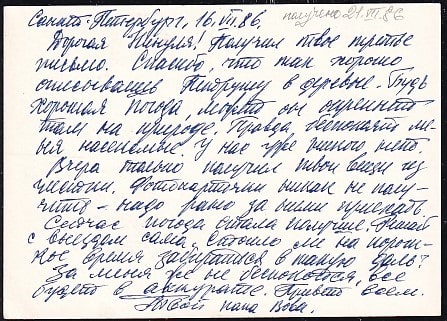 Санкт-Петербург, 16.VII.86. получено 21.VII.86
Дорогая Нинуля! Получил твое третье
письмо. Спасибо, что так хорошо
описываешь в деревне. Будь
хорошая погода, может он окрепнет
там на природе. Правда, беспокоят ме-
ня насекомые, у нас уже много нет.
Вчера только получил твои вещи из
чистки. Фотокарточки никак не полу-
чить – надо рано за ними приехать.
Сейчас погода стала получше. Решай
с выездом сама, стоило ли на корот-
кое время забираться в такую даль?
За меня же не беспокойся, все
будет в аккурате. Привет всем.
Твой папа Вова.